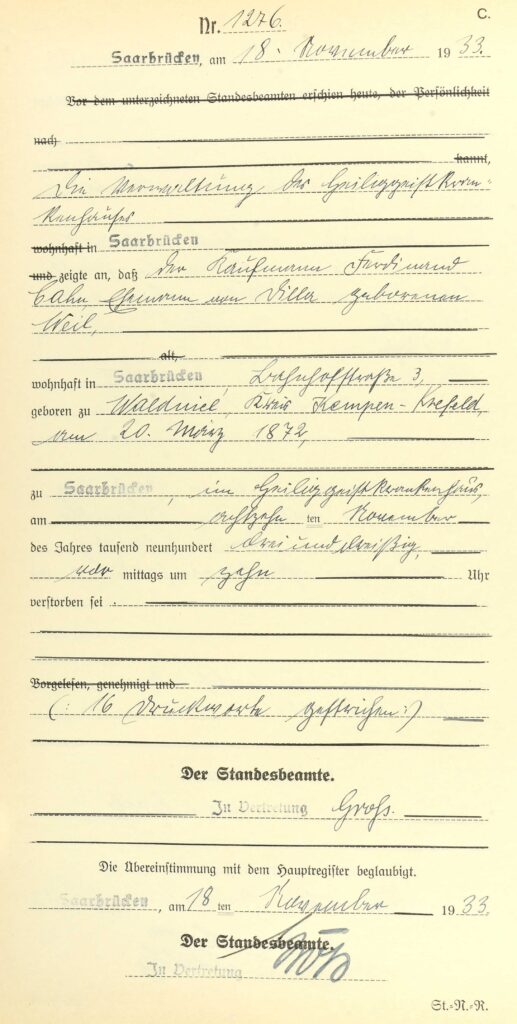 C.
Nr. 1276.
Saarbrücken, am 18. November 1933.
Vor dem unterzeichneten Standesbeamten erschien heute, der Persönlichkeit
nach
kannt,
Die Verwaltung des Heiliggeistkran-
kenhauses
wohnhaft in Saarbrücken
und zeigte an, daß der Kaufmann Ferdinand
Cahn Ehemann von Dilla geborenen
Weil,
alt,
wohnhaft in Saarbrücken, Bahnhofstraße 3,
geboren zu Waldniel, Kreis Kempen-Krefeld,
am 20. März 1872,
zu Saarbrücken, im Heiliggeistkrankenhaus,
am achtzehn ten November
des Jahres tausend neunhundert dreiunddreißig,
vor mittags um zehn Uhr
verstorben sei.
Vorgelesen, genehmigt und
(: 16 Druckworte gestrichen :)
Der Standesbeamte.
In Vertretung Groß.
Die Übereinstimmung mit dem Hauptregister beglaubigt.
Saarbrücken, am 18 ten November 1933.
Der Standesbeamte.
In Vertretung
St.=R.=R.